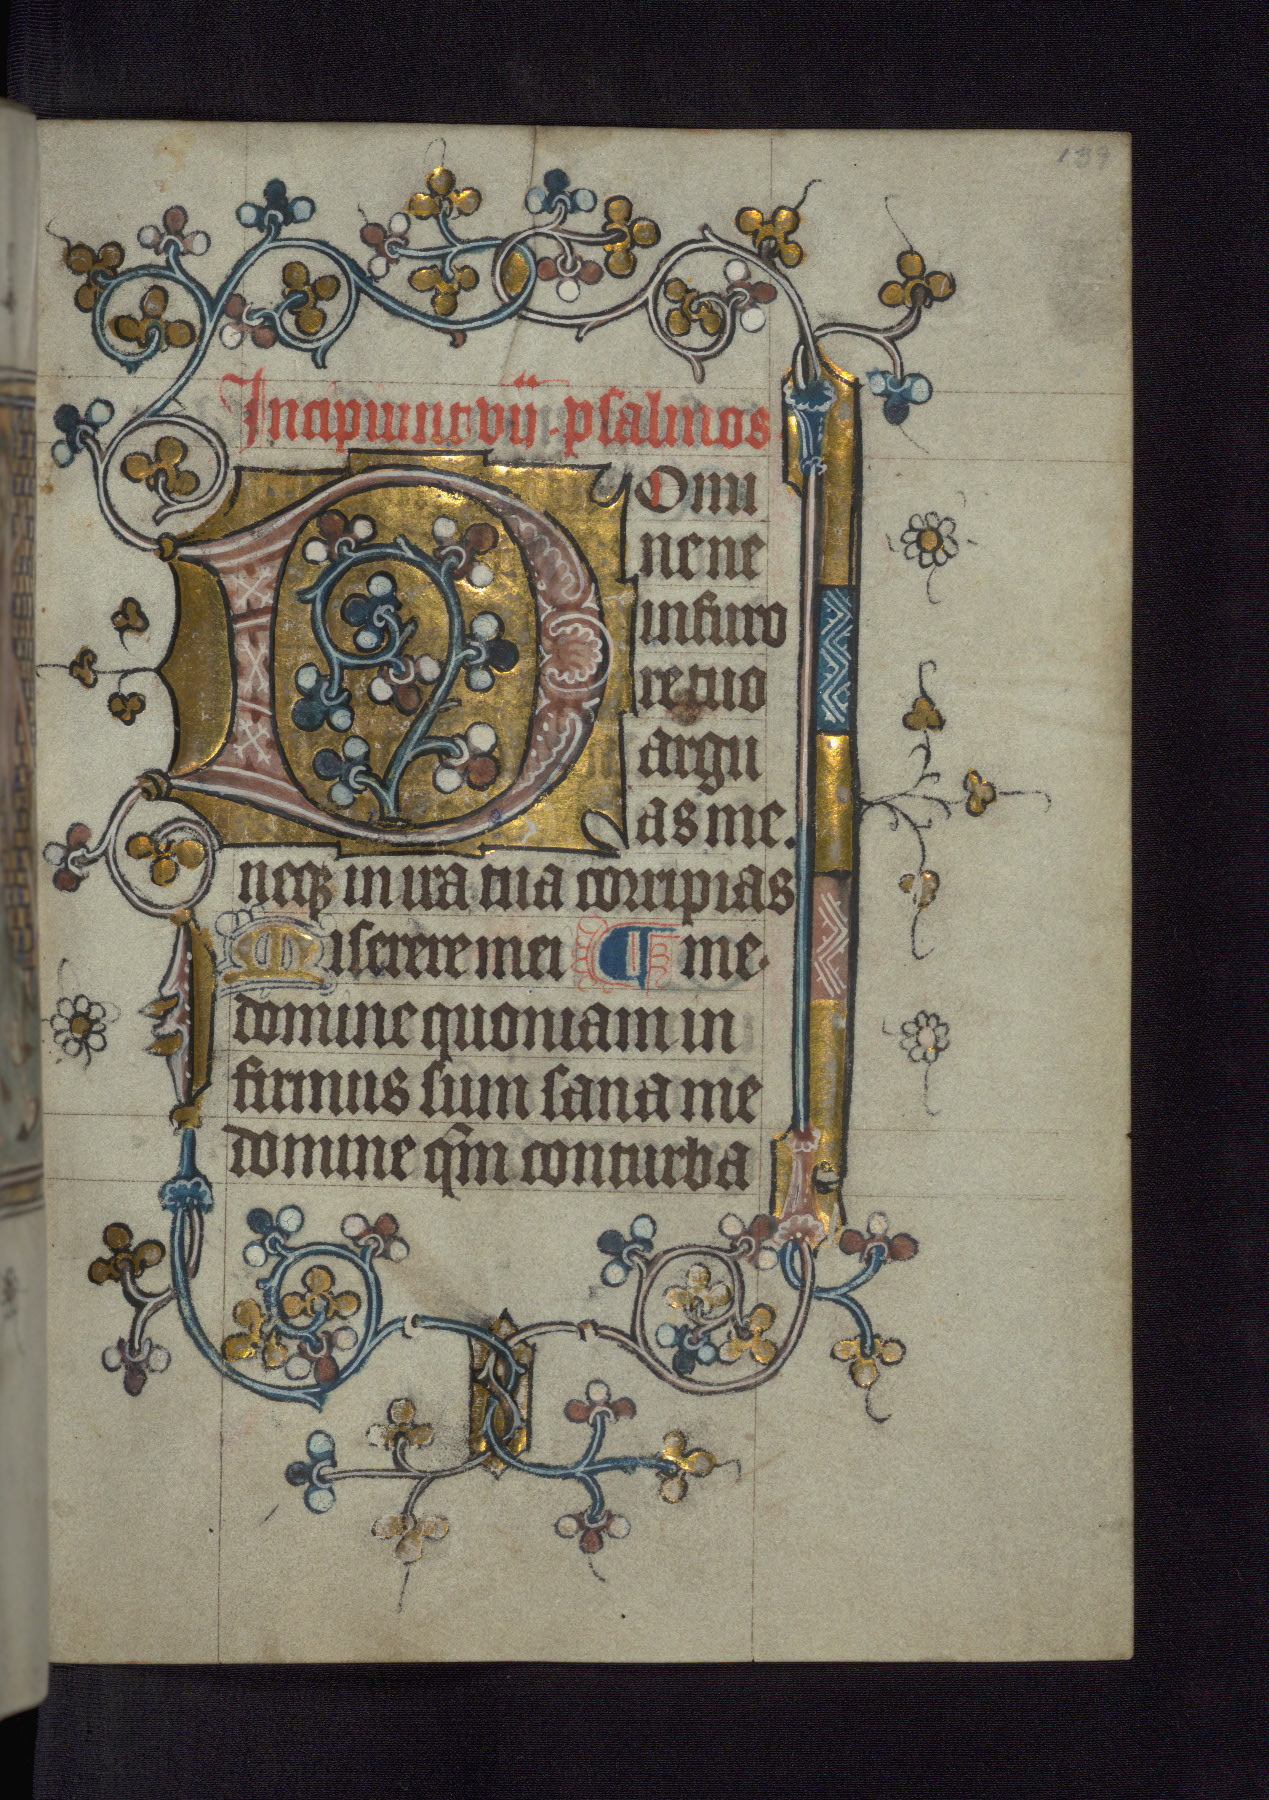 139
Incipiunt vii · psalmos
DOmi
ne ne
in furo
re tuo
argu
as me.
neqʒ in ira tua corripias
Miserere mei me
domine quoniam in
firmus sum sana me
domine qm̄ conturba